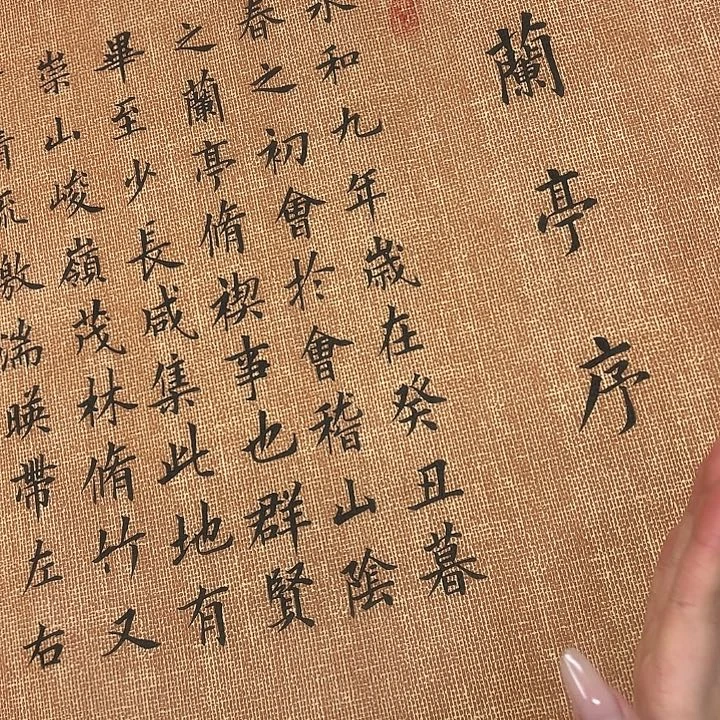 蘭亭序
永和九年歲在癸丑暮
春之初會於會稽山陰
之蘭亭脩禊事也群賢
畢至少長咸集此地有
崇山峻嶺茂林脩竹又
清流激湍暎帶左右